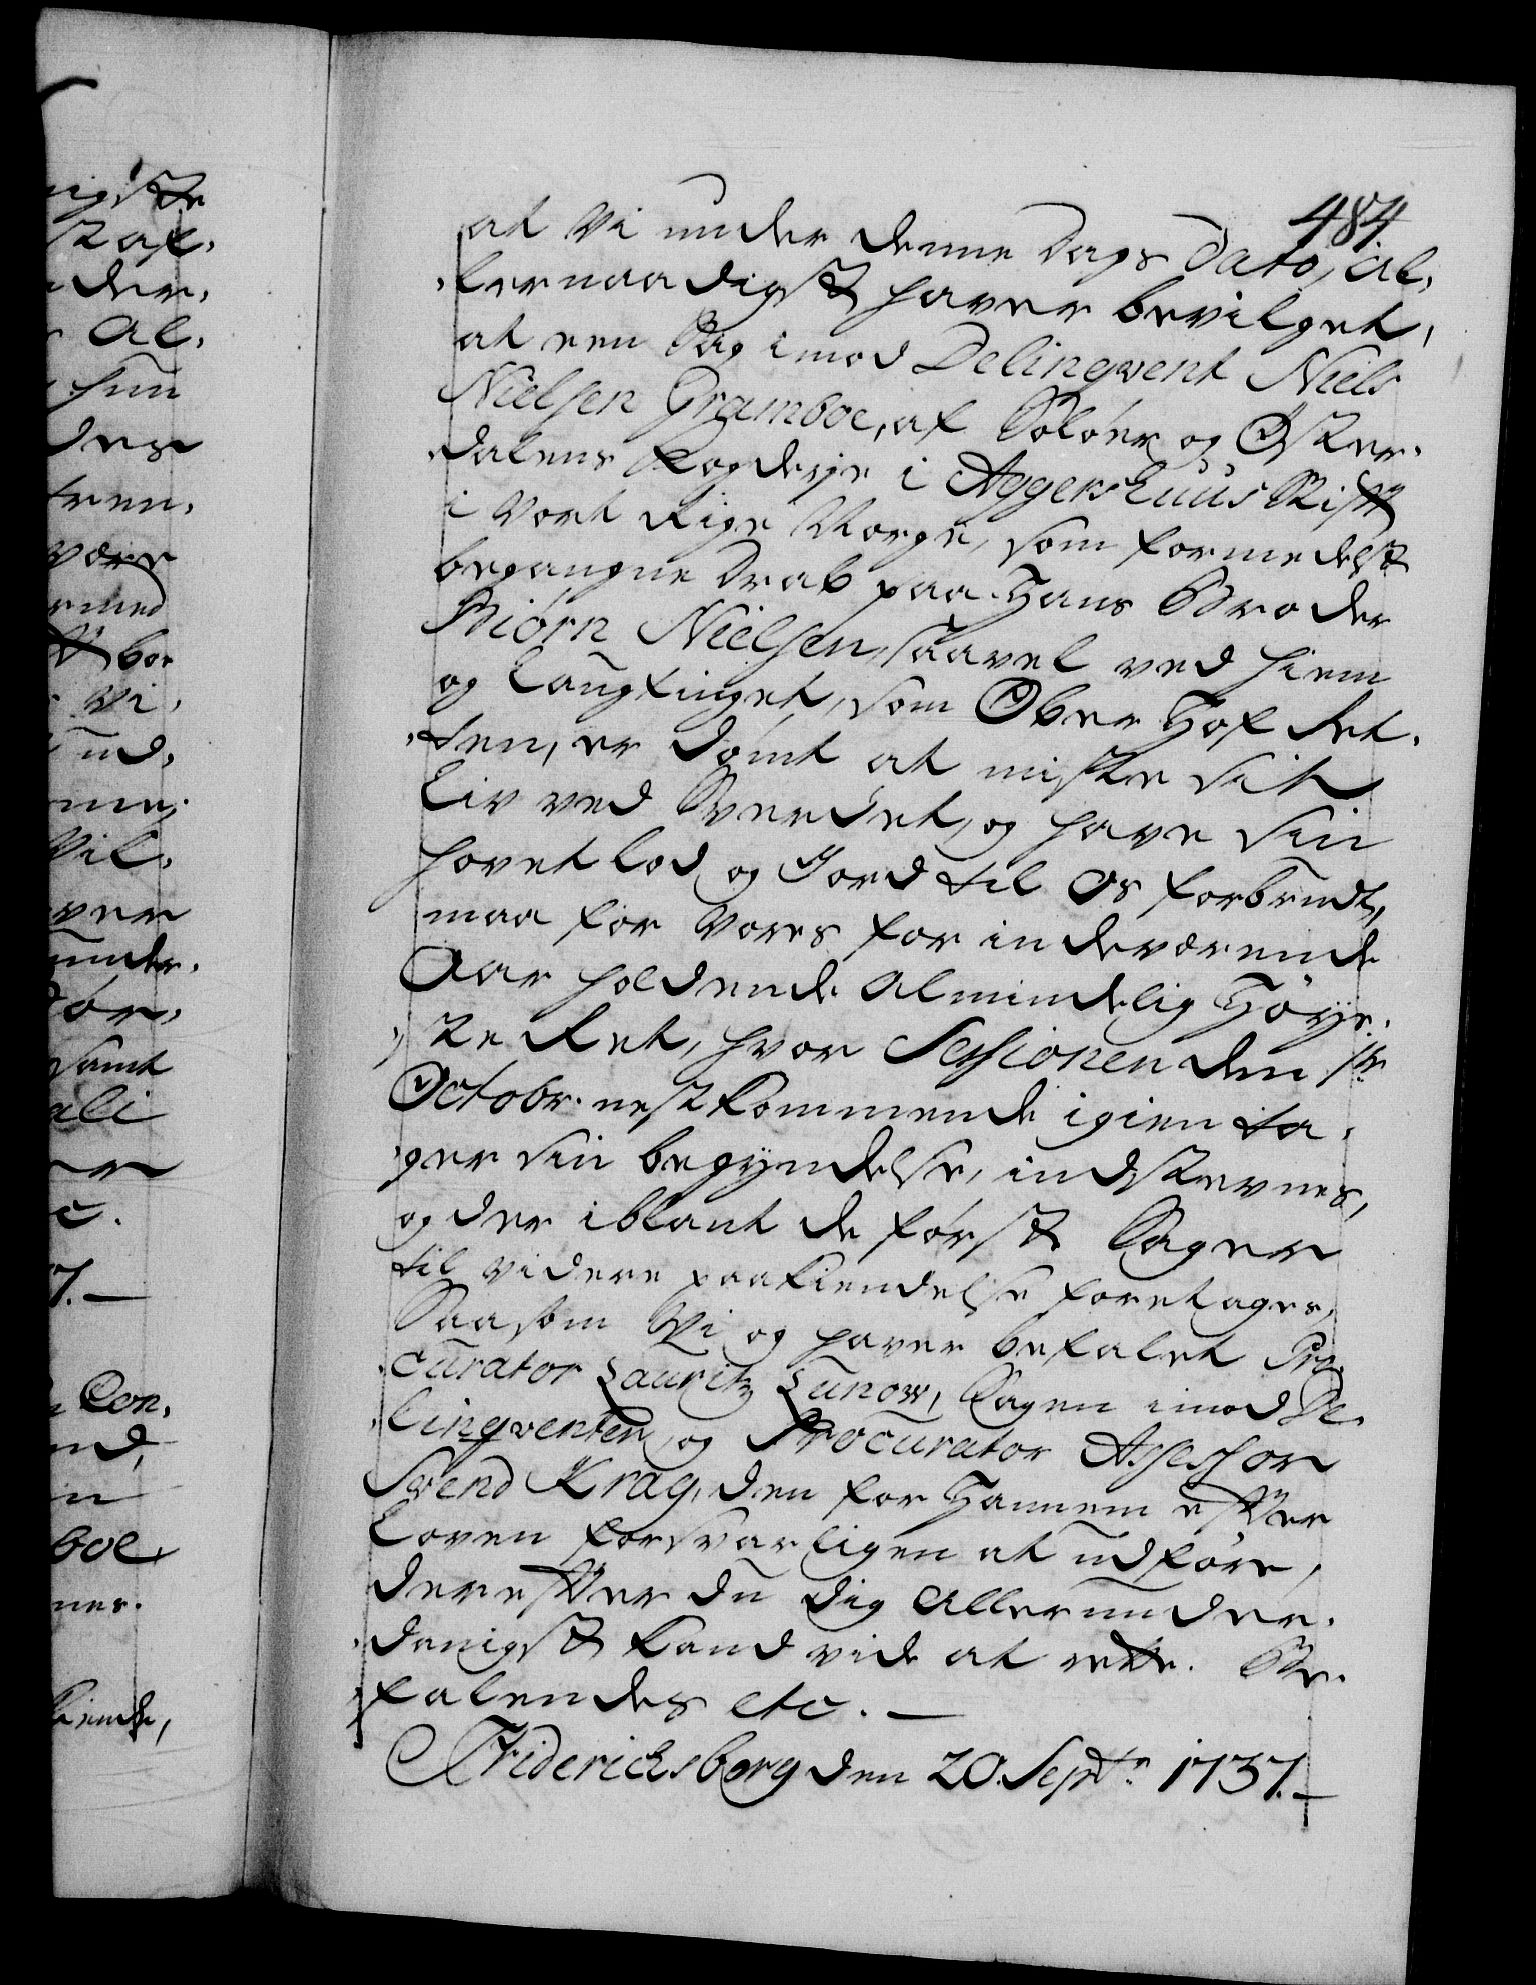 484.
at Vi under denne Dags Dato, al,
,lernaadigst haver bevilget,
at een Sag imod Delinqvent Niels
Nielsen Gramboe, af Soløer og Øster,
,dalens Fogderje i Aggershuus Stift
i Vort Rige Norge, som formedelst
begangne Drab paa Hans Broder
Biørn Nielsen, saavel ved Hiem
og Laugtinget, som Ober Hof Ret,
,ten, er dømt at miste sit
Liv ved Sverdet, og have sin
Hovetlod og Jord til Os forbrudt,
maa for Vores for indeværende
Aar holdende Almindelig Høÿe,
,ste Ret, hvor Sessionen den 1te
Octobr. nestkommende igien ta,
,ger sin begÿndelse, indstevnes,
og der iblant de først Sager
til videre paakiendelse foretages,
Saasom Vi og haver befalet Pro,
,curator Lauritz Lunow, Sagen imod De,
,linqventen, og Procurator Assessor
Svend Krag, den for Hannem efter
Loven forsvarligen at udføre,
derefter du dig Allerunder,
,danigst kand vide at rette. Be,
,falendes etc. —
Friderichsberg den 20. Septr. 1737. —